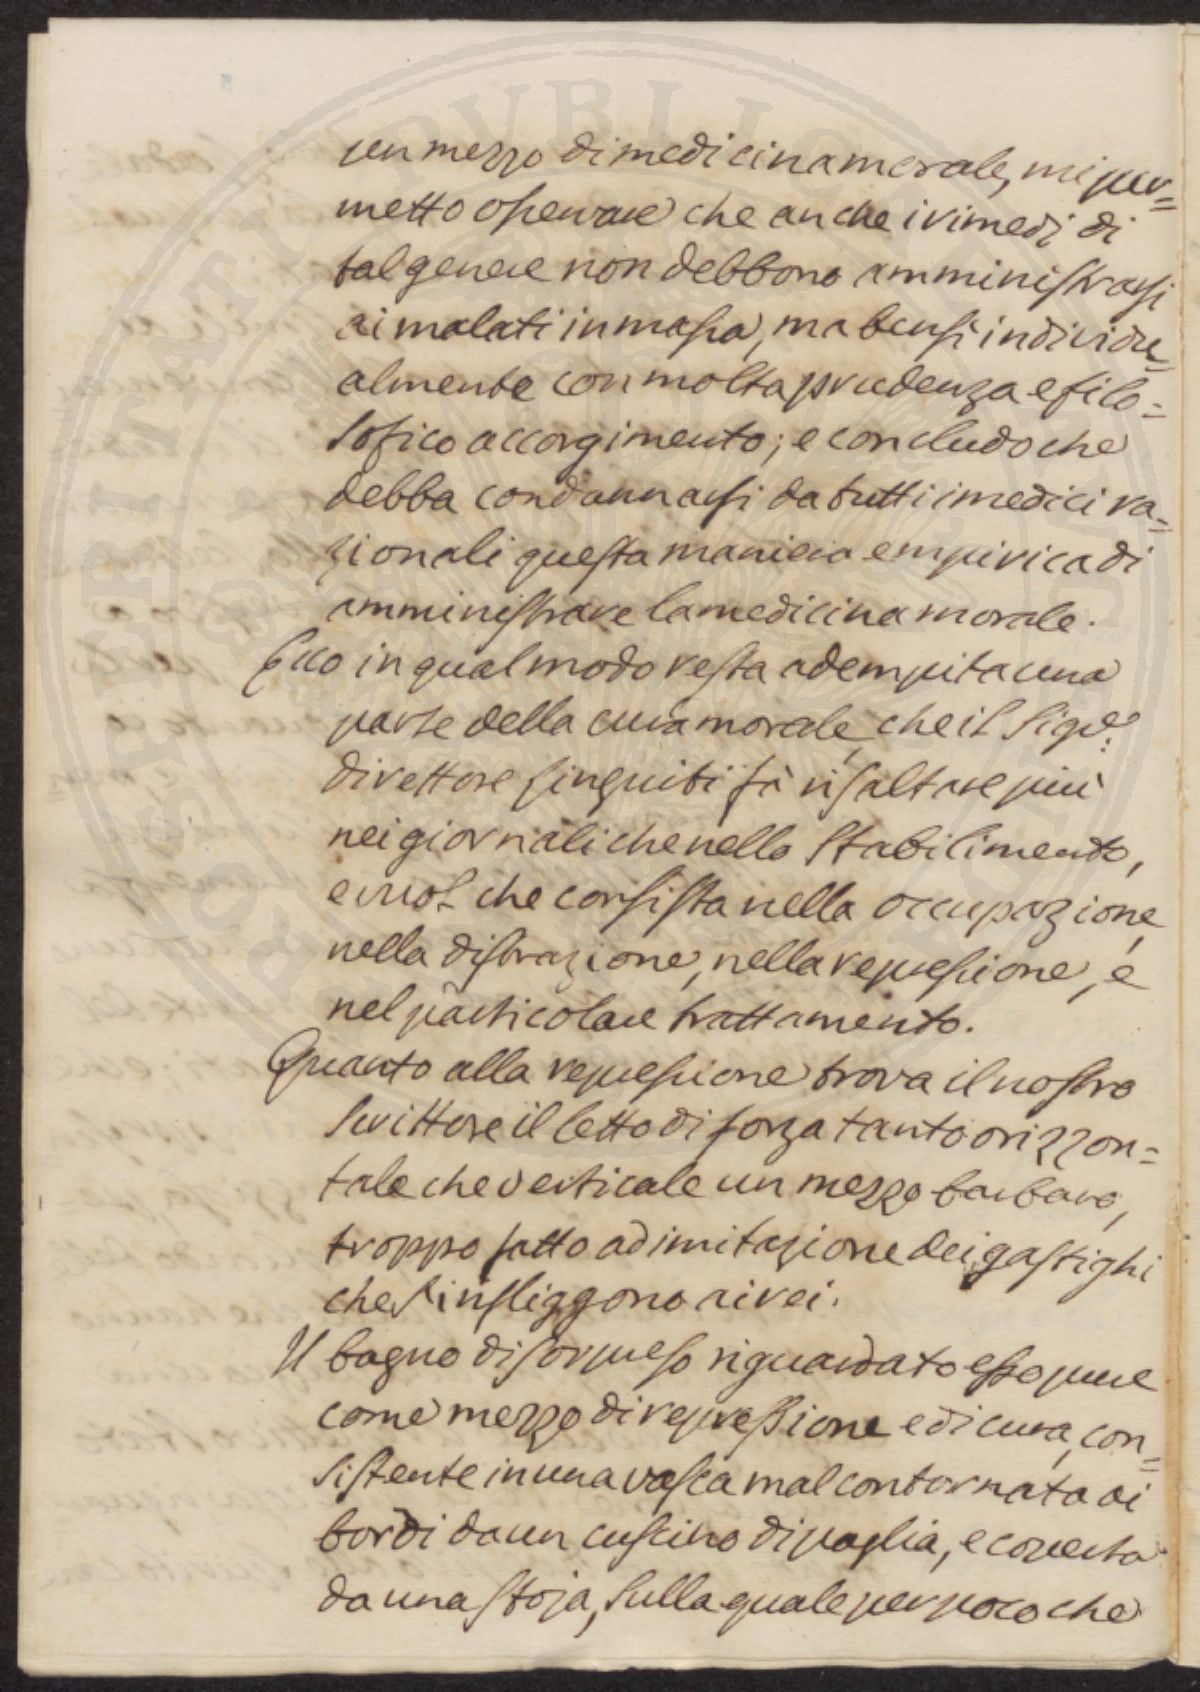 un mezzo di medicina morale, mi per=
metto osservare che anche i rimedj di
tal genere non debbono amministrarsi
ai malati in massa, ma bensì individu=
almente con molta prudenza e filo=
sofico accorgimento; e concludo che
debba condannarsi da tutti i medici ra=
zionali questa maniera empirica di
amministrare la medicina morale.
Ecco in qual modo resta adempita una
parte della cura morale, che il Sigre:
direttore fà risaltare più
nei giornali che nello Stabilimento,
e vuol che consista nella occupazione,
nella distrazione, nella repressione, e
nel particolare trattamento.
Quanto alla repressione trova il nostro
scrittore il letto di forza tanto orizzon=
tale che verticale un mezzo barbaro,
troppo fatto ad imitazione dei gastighi
che s'infliggono ai rei.
Il bagno di sorpreso riguardato esso pure
come mezzo di repressione e di cura, con=
sistente in una vasca mal contornata ai
bordi da un cuscino di paglia, e coperta
da una stoja, sulla quale per poco che
PROSPERITATI PUBLICAE